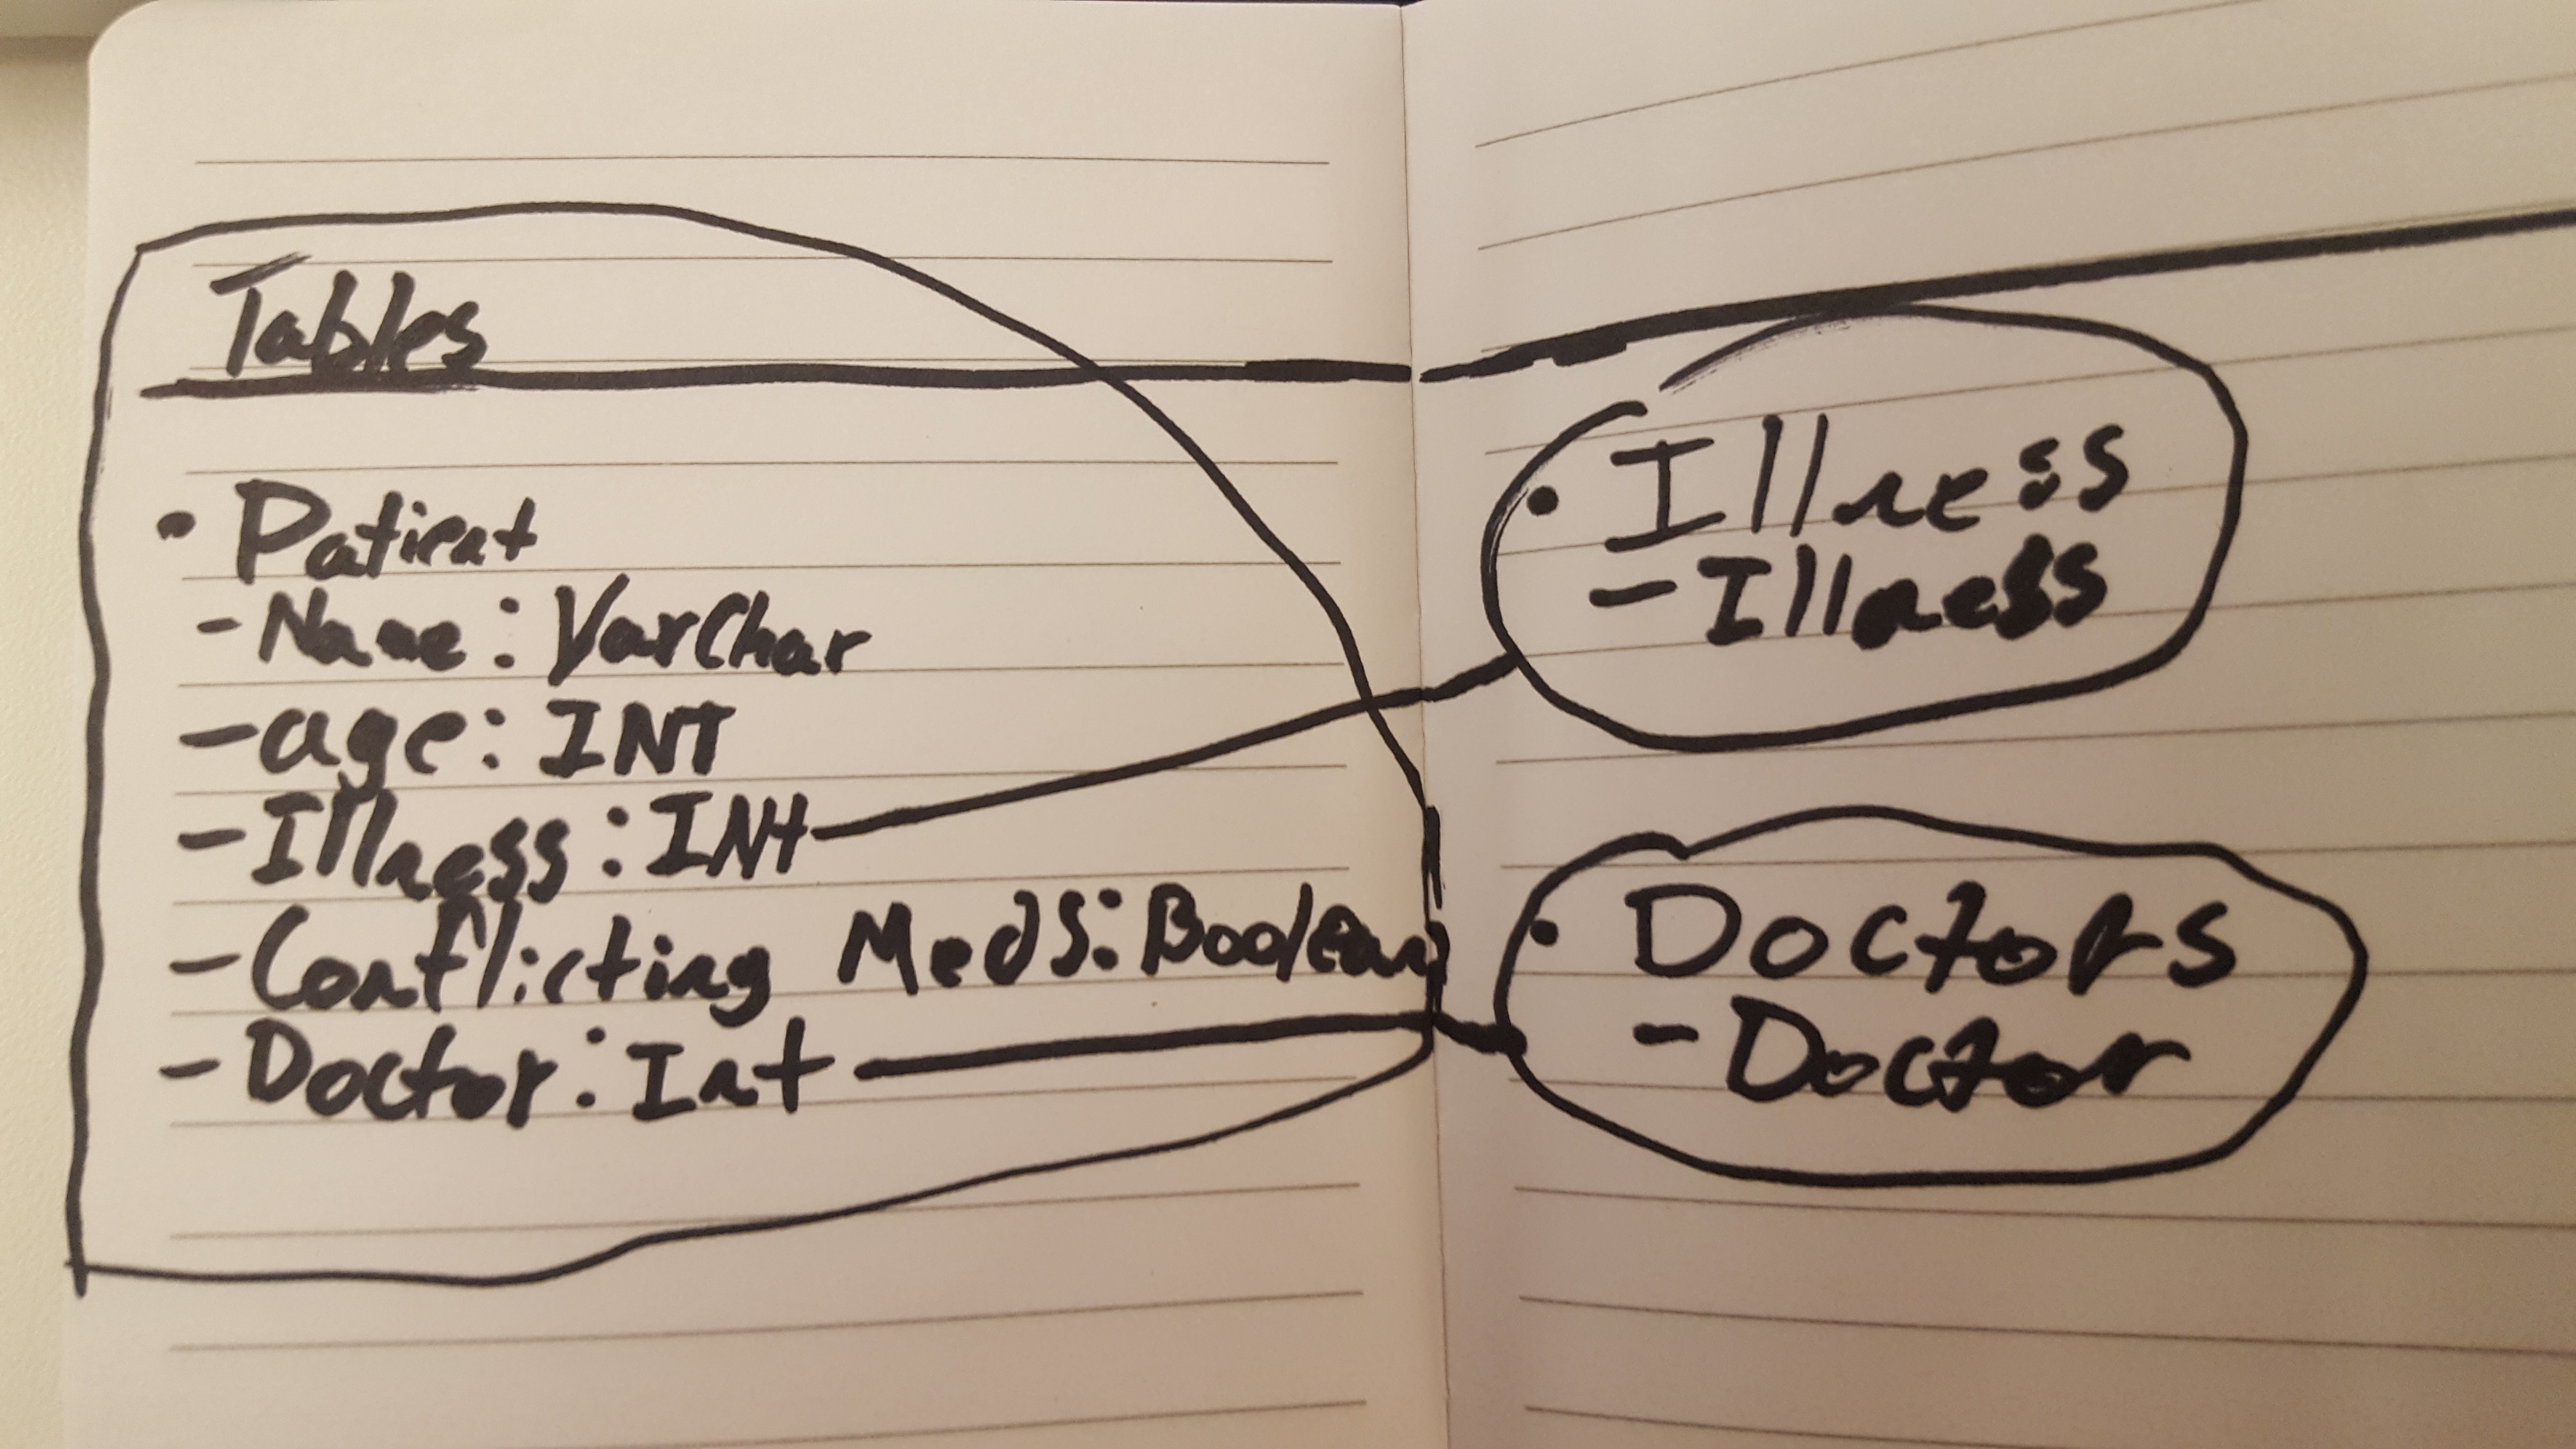 Tables
• Patient
- Name: VarChar
- age: INT
- Illness: INt
- Conflicting Meds: Boolean
- Doctor: Int
• Illness
- Illness
• Doctors
- Doctor